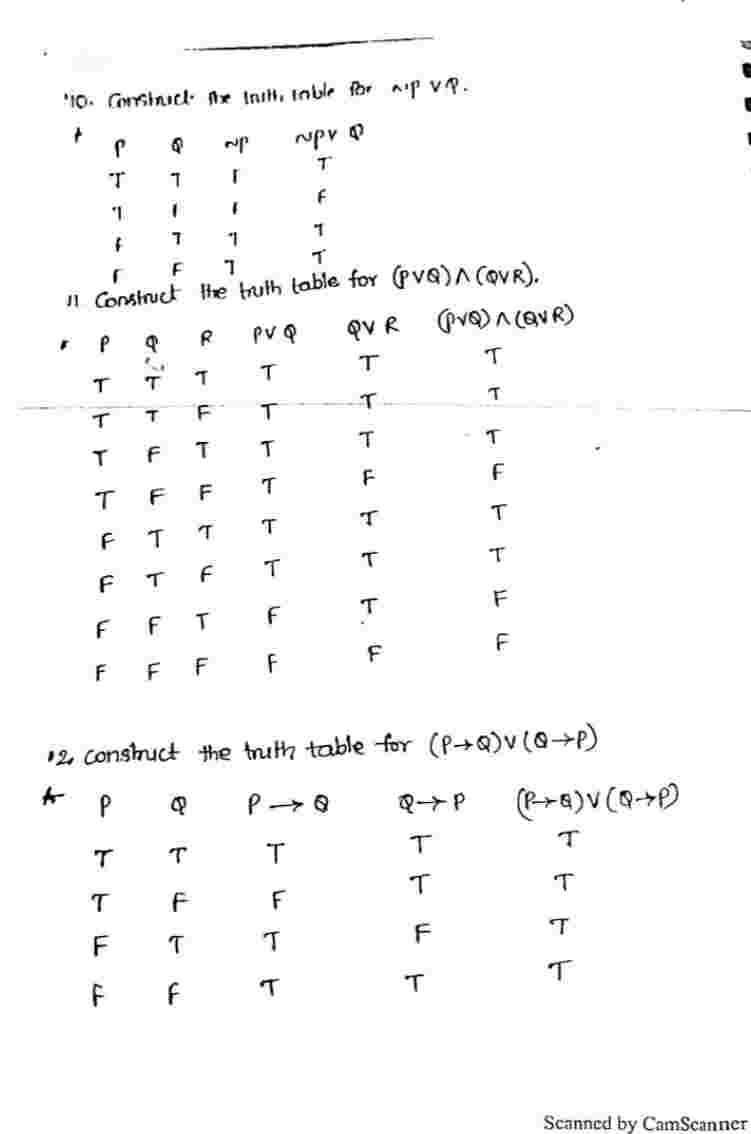 10. Construct the truth table for ~P V Q.
P Q ~P ~P V Q
T T F T
T F F F
F T T T
F F T T
11 Construct the truth table for (P V Q) ∧ (Q V R).
P Q R P V Q Q V R (P V Q) ∧ (Q V R)
T T T T T T
T T F T T T
T F T T T T
T F F T F F
F T T T T T
F T F T T T
F F T F T F
F F F F F F
12. Construct the truth table for (P → Q) V (Q → P)
P Q P → Q Q → P (P → Q) V (Q → P)
T T T T T
T F F T T
F T T F T
F F T T T
Scanned by CamScanner